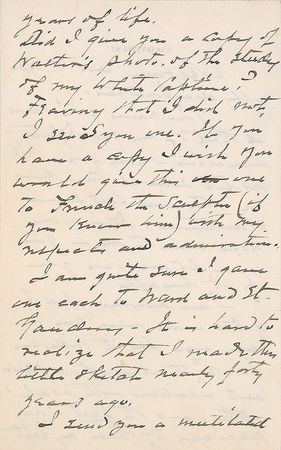 years of life.
Did I give you a copy of
Walter's photo. of the study
of my White Captive?
Fearing that I did not,
I send you one. If you
have a copy I wish you
would give this one
to French the Sculptor (if
you know him) with my
respects and admiration.
I am quite sure I gave
one each to Ward and St.
Gaudens. It is hard to
realize that I made this
little sketch nearly forty
years ago.
I send you a mutilated